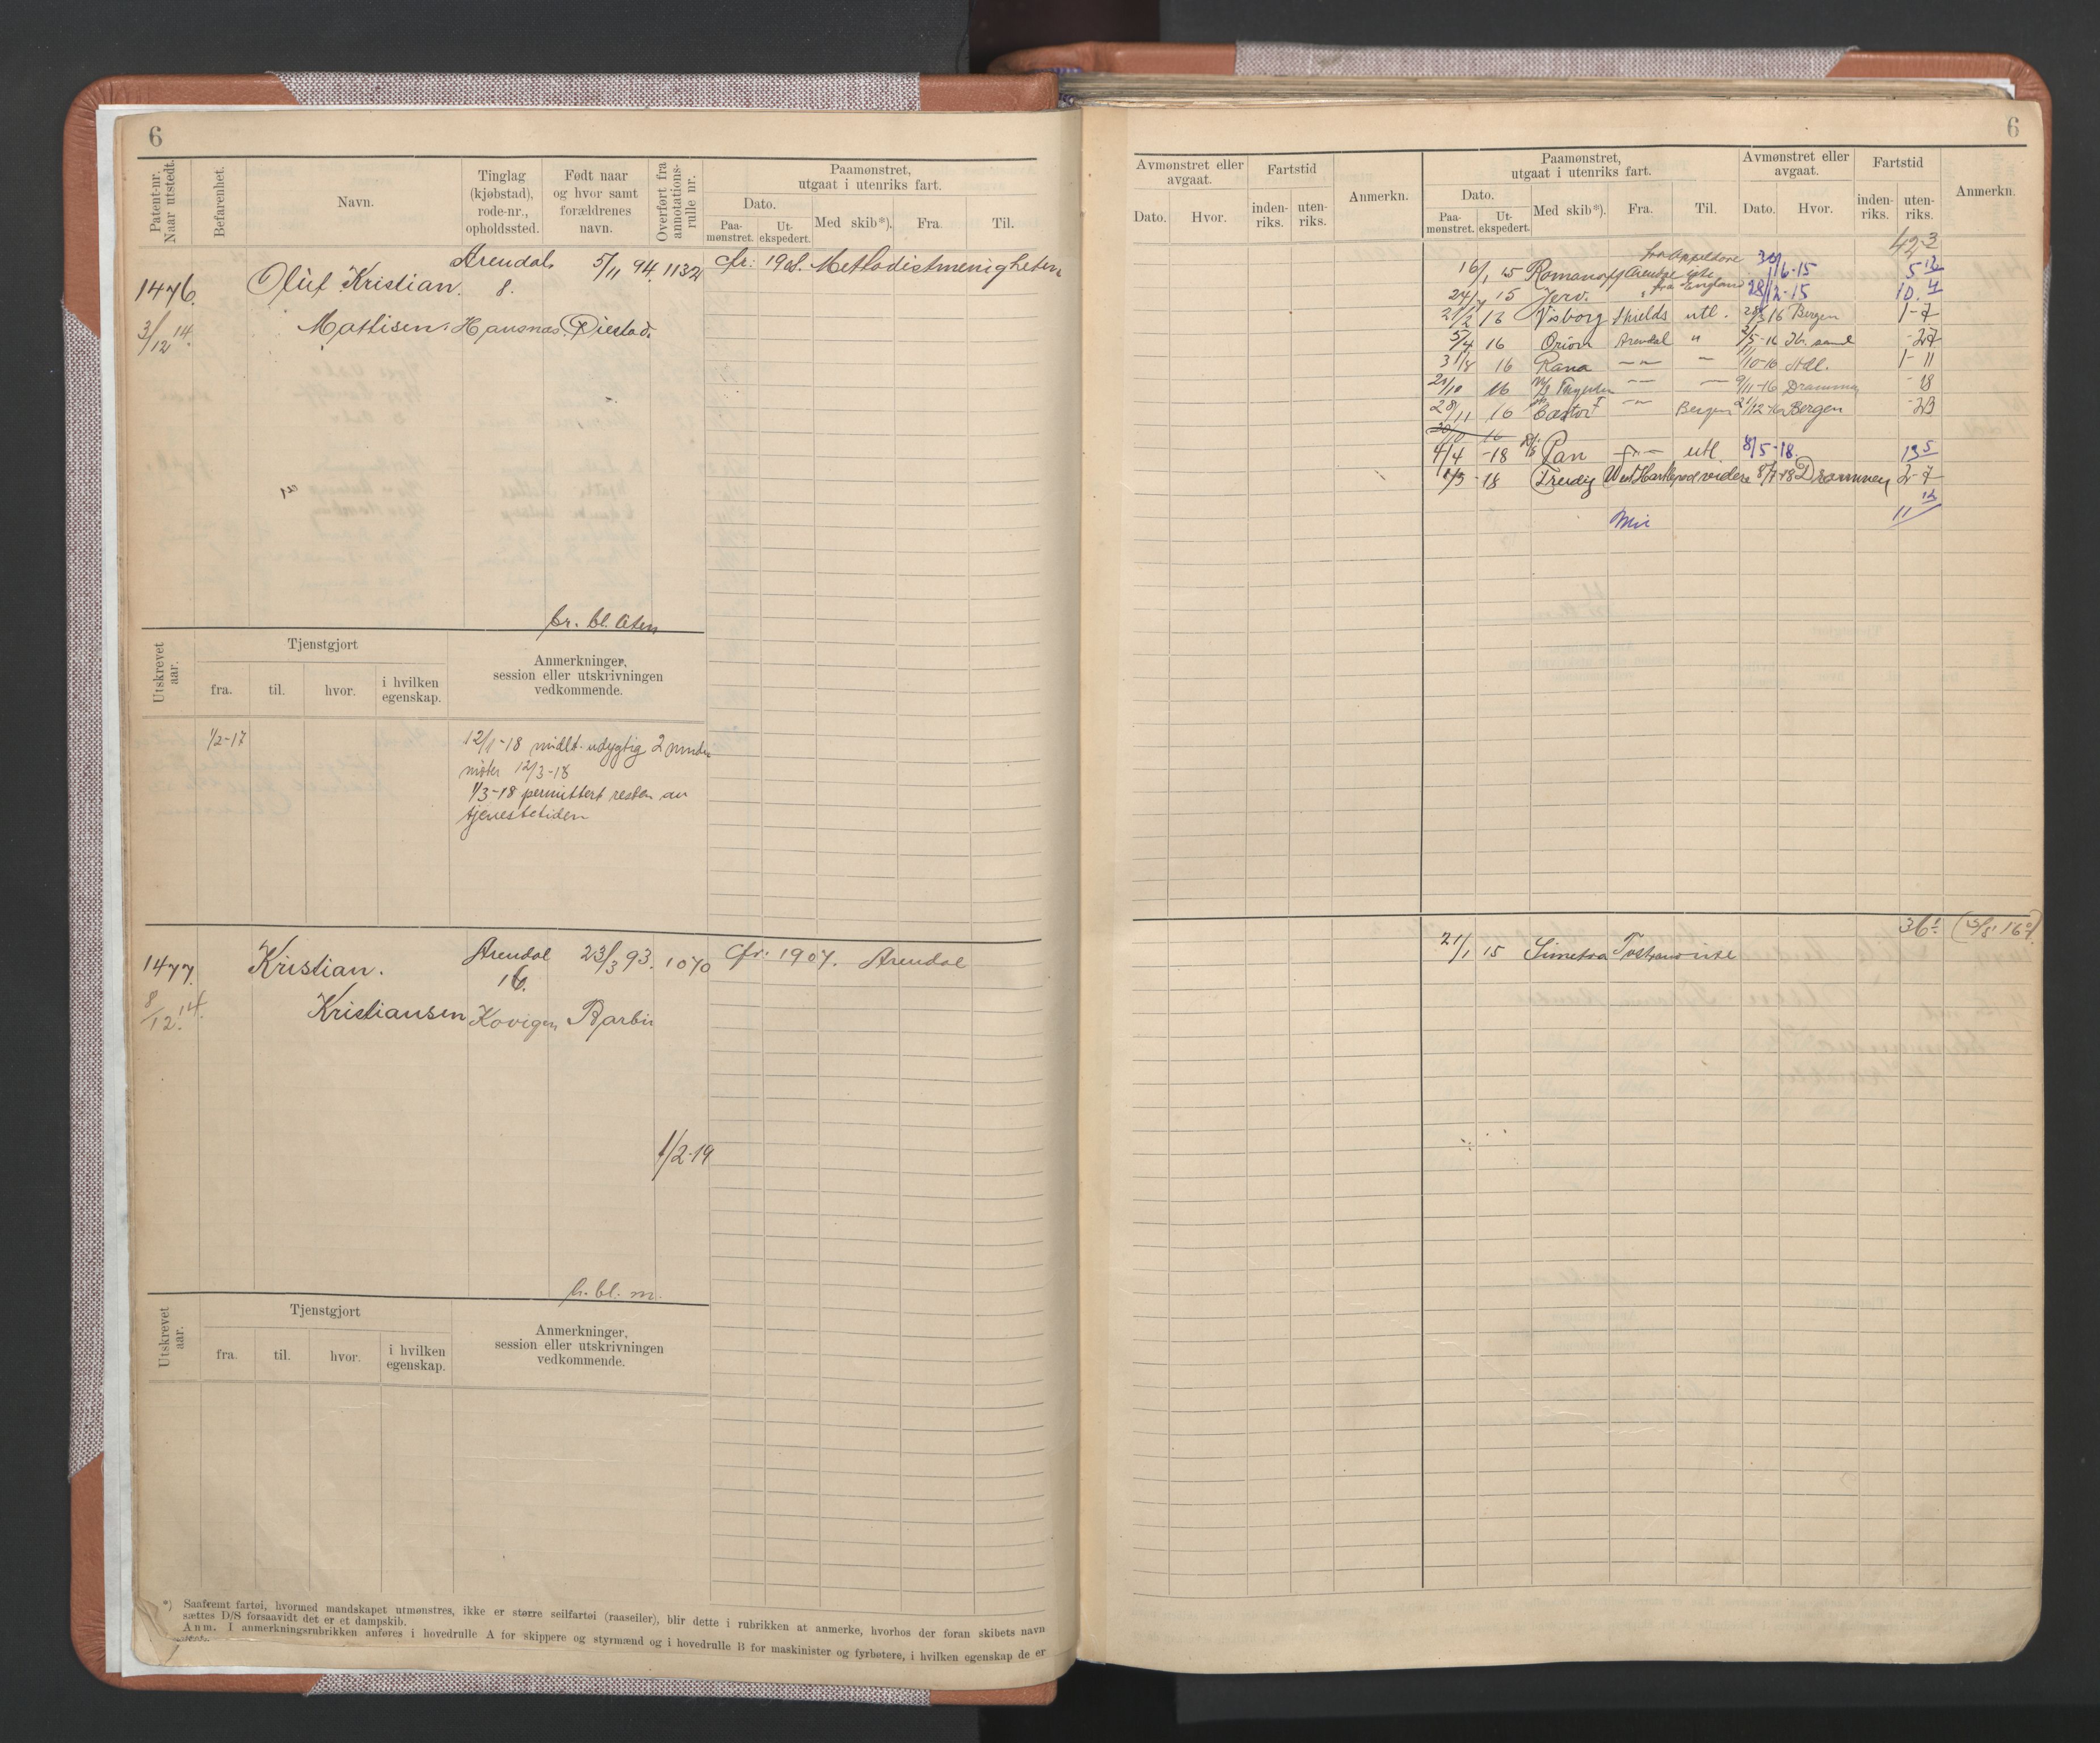 6
Patent-nr. Naar utstedt.
Befarenhet.
Navn.
Tinglag (kjøbstad), rode-nr., opholdssted.
Født naar og hvor samt forældrenes navn.
Overført fra annotations-rulle nr.
Paamønstret, utgaat i utenriks fart.
Dato.
Paa-mønstret.
Ut-ekspedert.
Med skib*).
Fra.
Til.
1476. Oluf Kristian. Arendal 8. 5/11 94. 1132 Cfr: 1908. Methodistmenigheten
3/12 14. Mattisen.
br. bl. Øien
Utskrevet aar.
Tjenstgjort
fra.
til.
hvor.
i hvilken egenskap.
Anmerkninger, session eller utskrivningen vedkommende.
1/2-17
12/1-18 midlt. udygtig 2 mndr
møter 12/3-18
1/3-18 permittert resten av
tjenestetiden
1477. Kristian. Arendal 16. 23/3 93. 1070 Cfr: 1907. Arendal
8/12 14. Kristiansen
1/2-19
h. bl. m.
Utskrevet aar.
Tjenstgjort
fra.
til.
hvor.
i hvilken egenskap.
Anmerkninger, session eller utskrivningen vedkommende.
*) Saafremt fartøi, hvormed mandskapet utmønstres, ikke er større seilfartøi (raaseiler), blir dette i rubrikken at anmerke, hvorhos der foran skibets navn
sættes D/S forsaavidt det er et dampskib.
Anm. I anmerkningsrubrikken anføres i hovedrulle A for skippere og styrmænd og i hovedrulle B for maskinister og fyrbøtere, i hvilken egenskap de er
6
Avmønstret eller avgaat.
Dato.
Hvor.
Fartstid
inden-riks.
uten-riks.
Anmerkn.
Paamønstret, utgaat i utenriks fart.
Dato.
Paa-mønstret.
Ut-ekspedert.
Med skib*).
Fra.
Til.
Avmønstret eller avgaat.
Dato.
Hvor.
Fartstid
inden-riks.
uten-riks.
Anmerkn.
42-3
fra Appeldore
16/1 15 Romanoff Arendal 5 12
fra England
24/7 15 Jerv. 28/12-15 10. 4
21/2 16 Visborg Shields utl. 28/3 16 Bergen 1-7
5/4 16 Orion Arendal " 2/5-16 Kr. sand -27
31/8 16 Rana 11/10-16 Hdl. 1-11
21/10 16 9/11-16 Drammen -18
28/11 16 Castor I Bergen 21/12-16 Bergen -23
4/4 -18 Pan utl. 8/5-18. 13 5
-18 Fredig West Hartlepool videre 8/7-18 Drammen 2-7
11 12
36 1
21/1 15